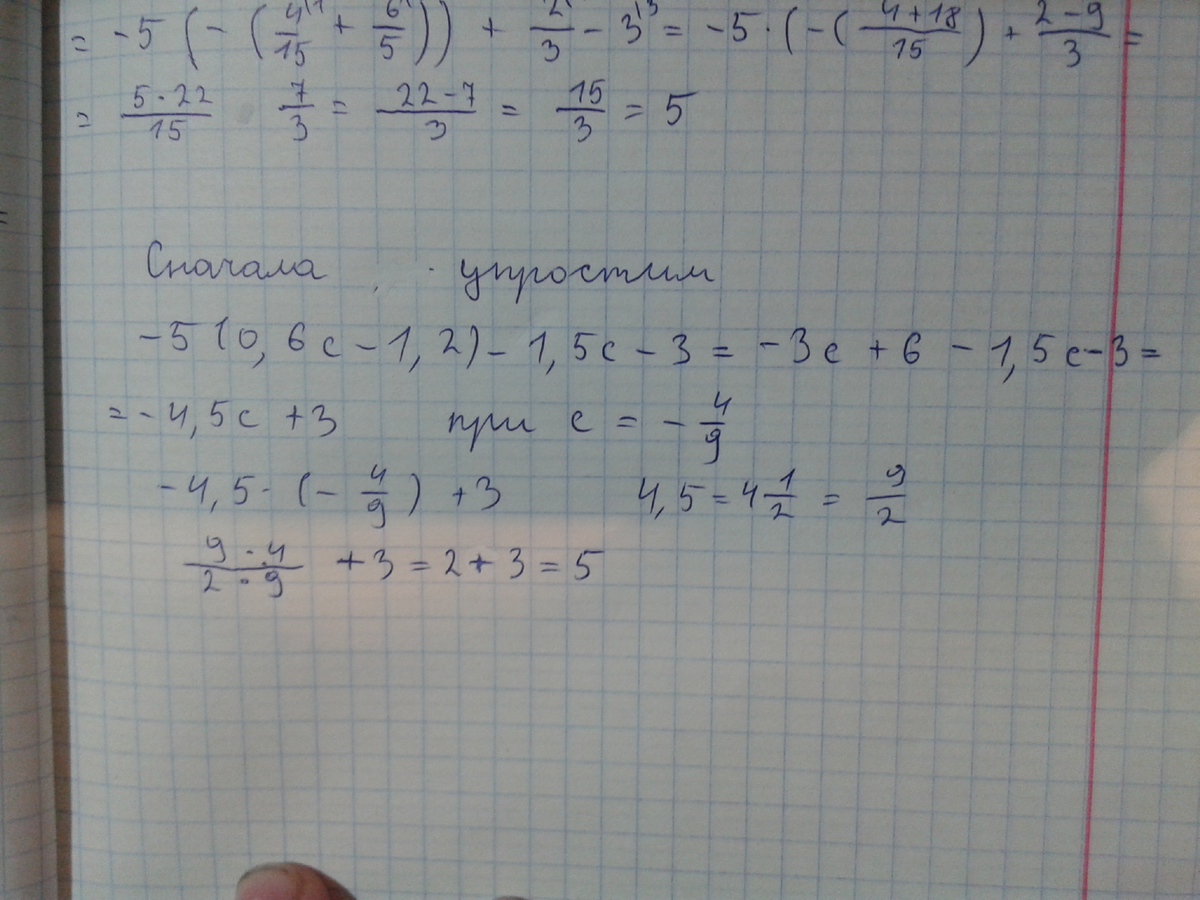 = -5 (-(4/15 + 6/5)) + 2/3 - 3 = -5·(-(4+18/15) + 2-9/3 =
= 5·22/15 7/3 = 22-7/3 = 15/3 = 5
Сначала упростим
-5(0,6c-1,2)-1,5c-3 = -3c+6-1,5c-3=
=-4,5c+3 при c = -4/9
-4,5·(-4/9)+3 4,5=4 1/2 = 9/2
9·4/2·9 +3=2+3=5